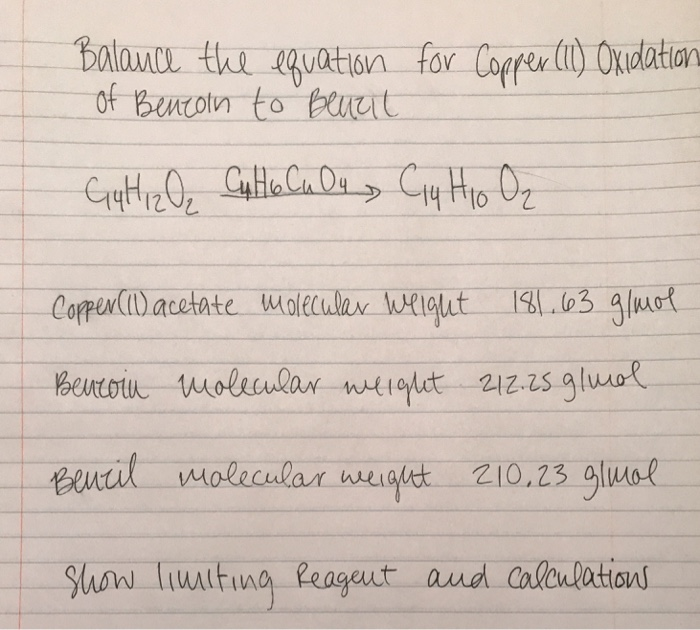 Balance the equation for Copper(II) Oxidation
of Benzoin to Benzil
C14H12O2 C4H6CuO4 → C14H10O2
Copper(II) acetate molecular weight 181.63 g/mol
Benzoin molecular weight 212.25 g/mol
Benzil molecular weight 210.23 g/mol
Show limiting Reagent and calculations